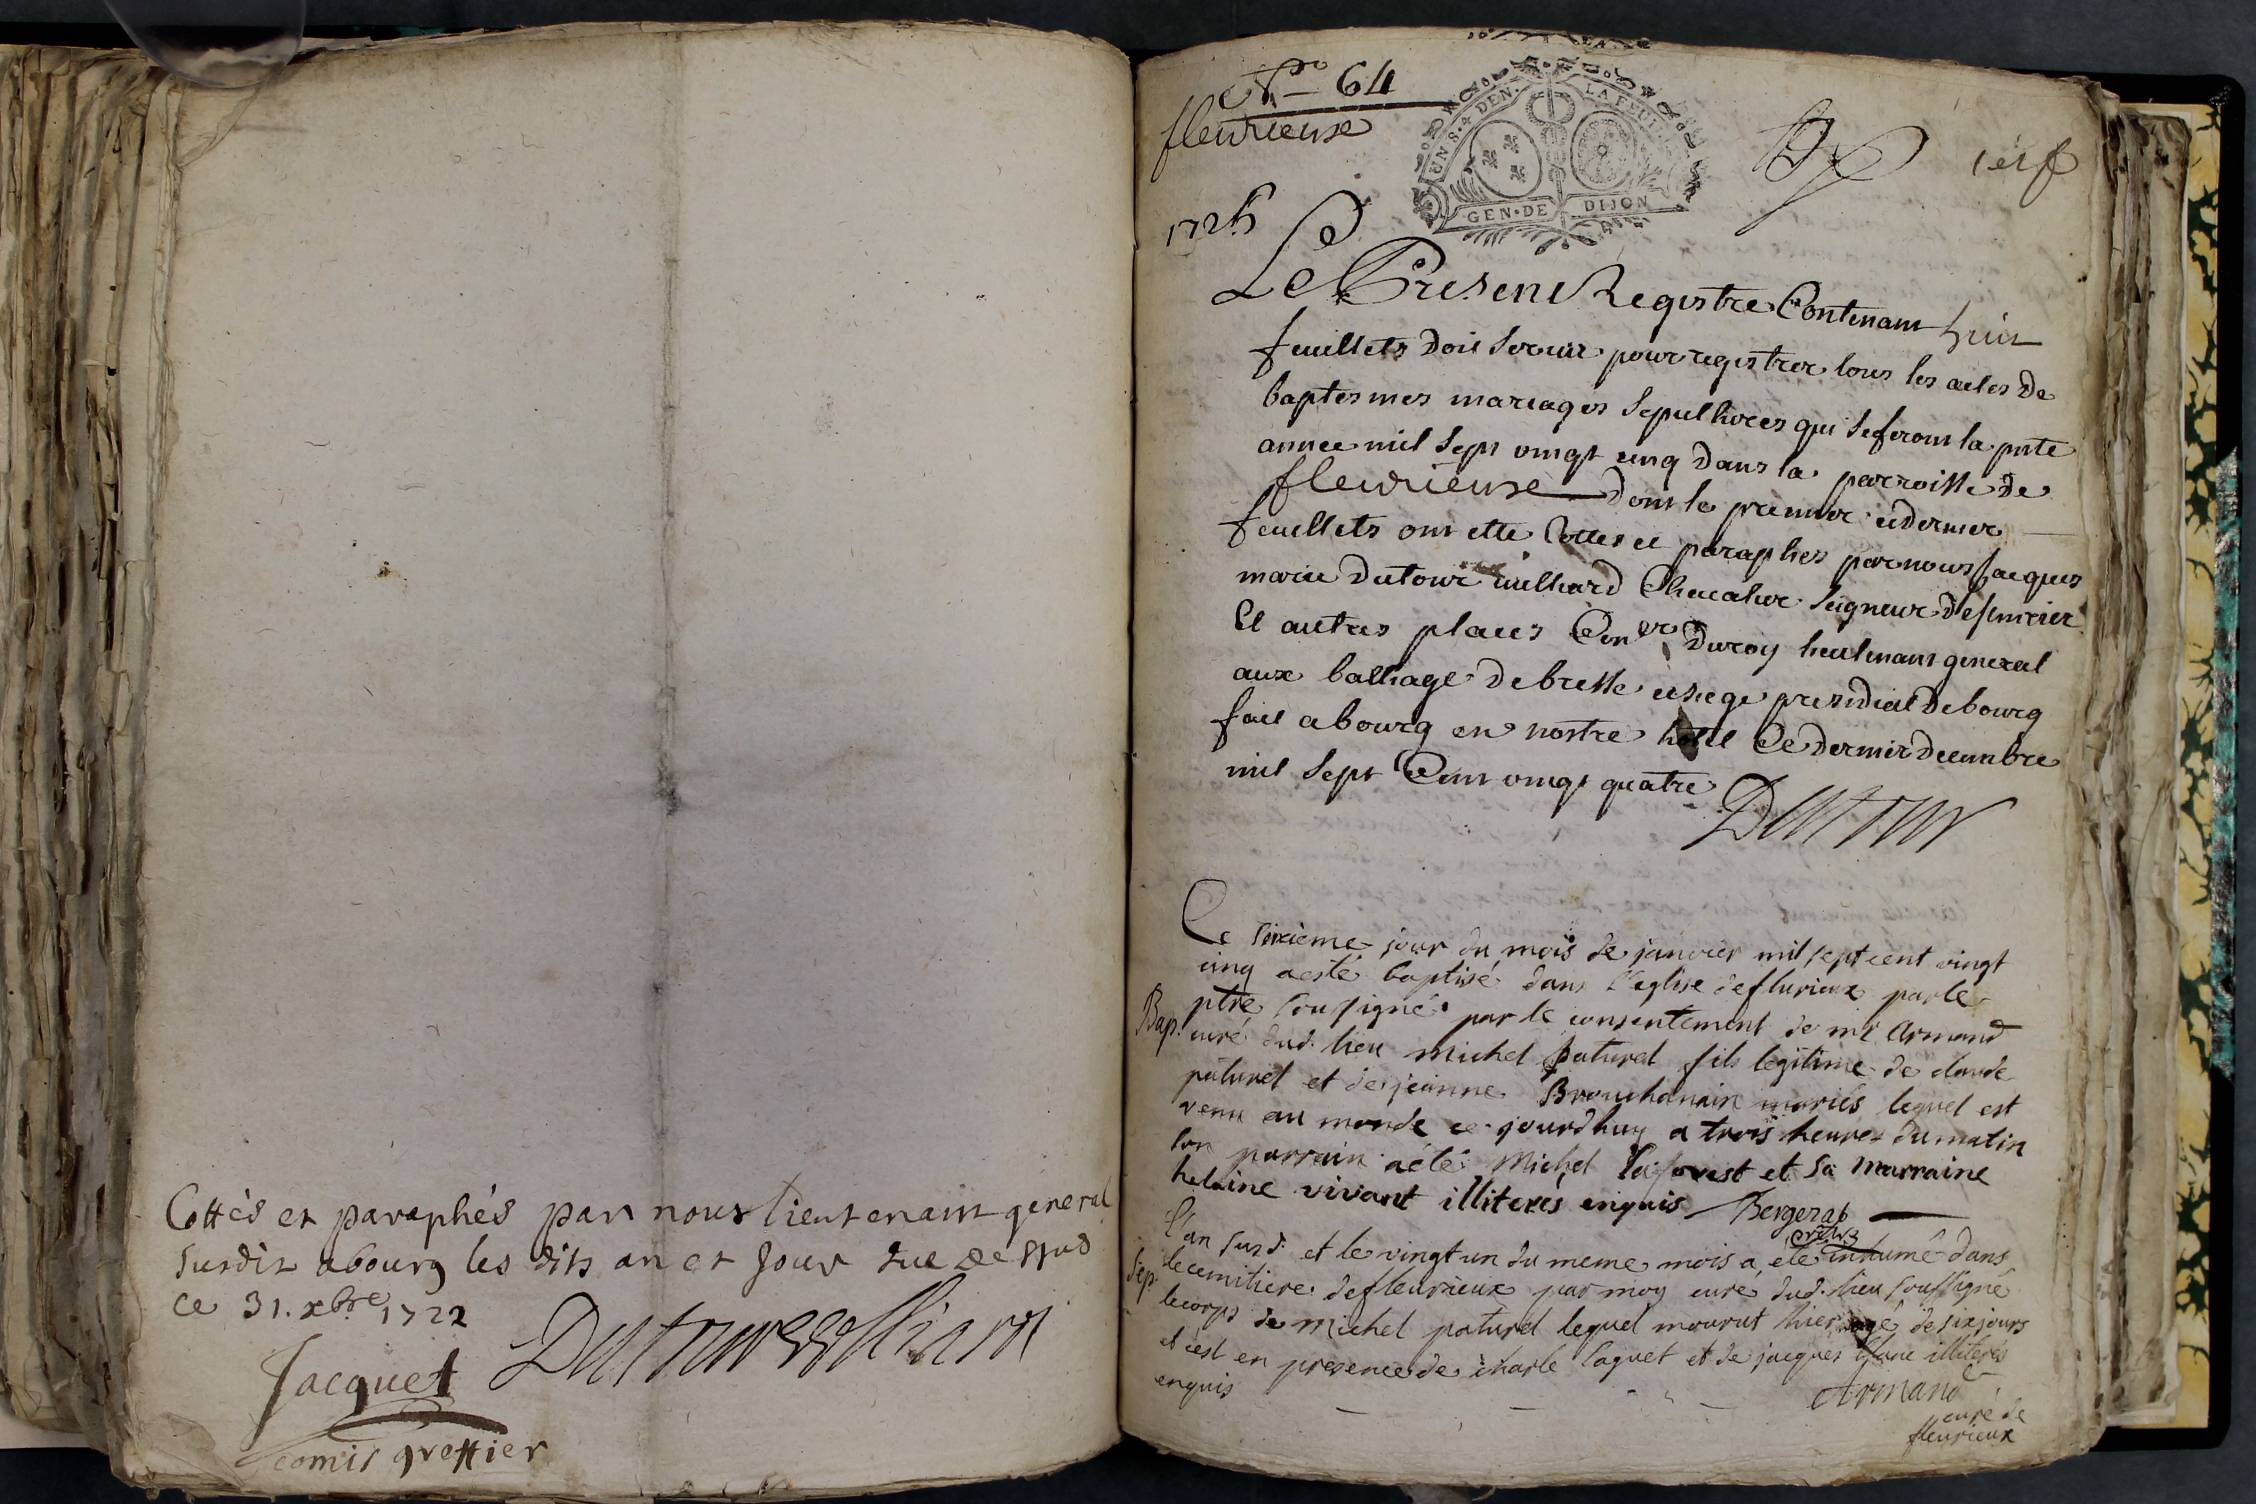 Cottés et paraphés par nous lieutenant general
susdit a bourg les dits an et jour que dessus
ce 31. xbre 1722
Jacquet
Dutour Vuilliard
comis greffier
No 64
fleurieux
UN S. 4 DEN. LA FEUIL.
GEN. DE DIJON
1er f
1725
Le Present Registre Contenant huit
feuillets doit servir pour registrer tous les actes de
baptesmes mariages sepultures qui se feront la pnte
annee mil sept vingt cinq dans la parroisse de
fleurieux dont le premier et dernier
feuillets ont ette Cottes et paraphes par nous Jacques
marie Dutour vuilliard Chevalier Seigneur de
Et autres places Coner Du roy lieutenant general
aux balliage de bresse et siege presidial de bourg
fait a bourg en nostre hotel Ce dernier decembre
mil sept Cent vingt quatre
Dutour
Ce sixieme jour du mois de janvier mil sept cent vingt
cinq a esté baptisé dans l'eglise de flurieux par le
Bap. ptre soussigné par le consentement de mr Armand
curé dud. lieu Michel paturel fils legitime de claude
paturel et de jeanne mariés lequel est
venu au monde ce jourdhuy a trois heures du matin
son parrain a été Michel laforest et sa marraine
helaine vivant illiterés enquis
L'an susd. et le vingt un du meme mois a eté inhumé dans
Sep. le cemitiere de fleurieux par moy curé dud. lieu soussigné
le corps de Michel paturel lequel mourut hier agé de six jours
et c'est en presence de charle laquet et de jacques illiterés
enquis
Armand
curé de
fleurieux